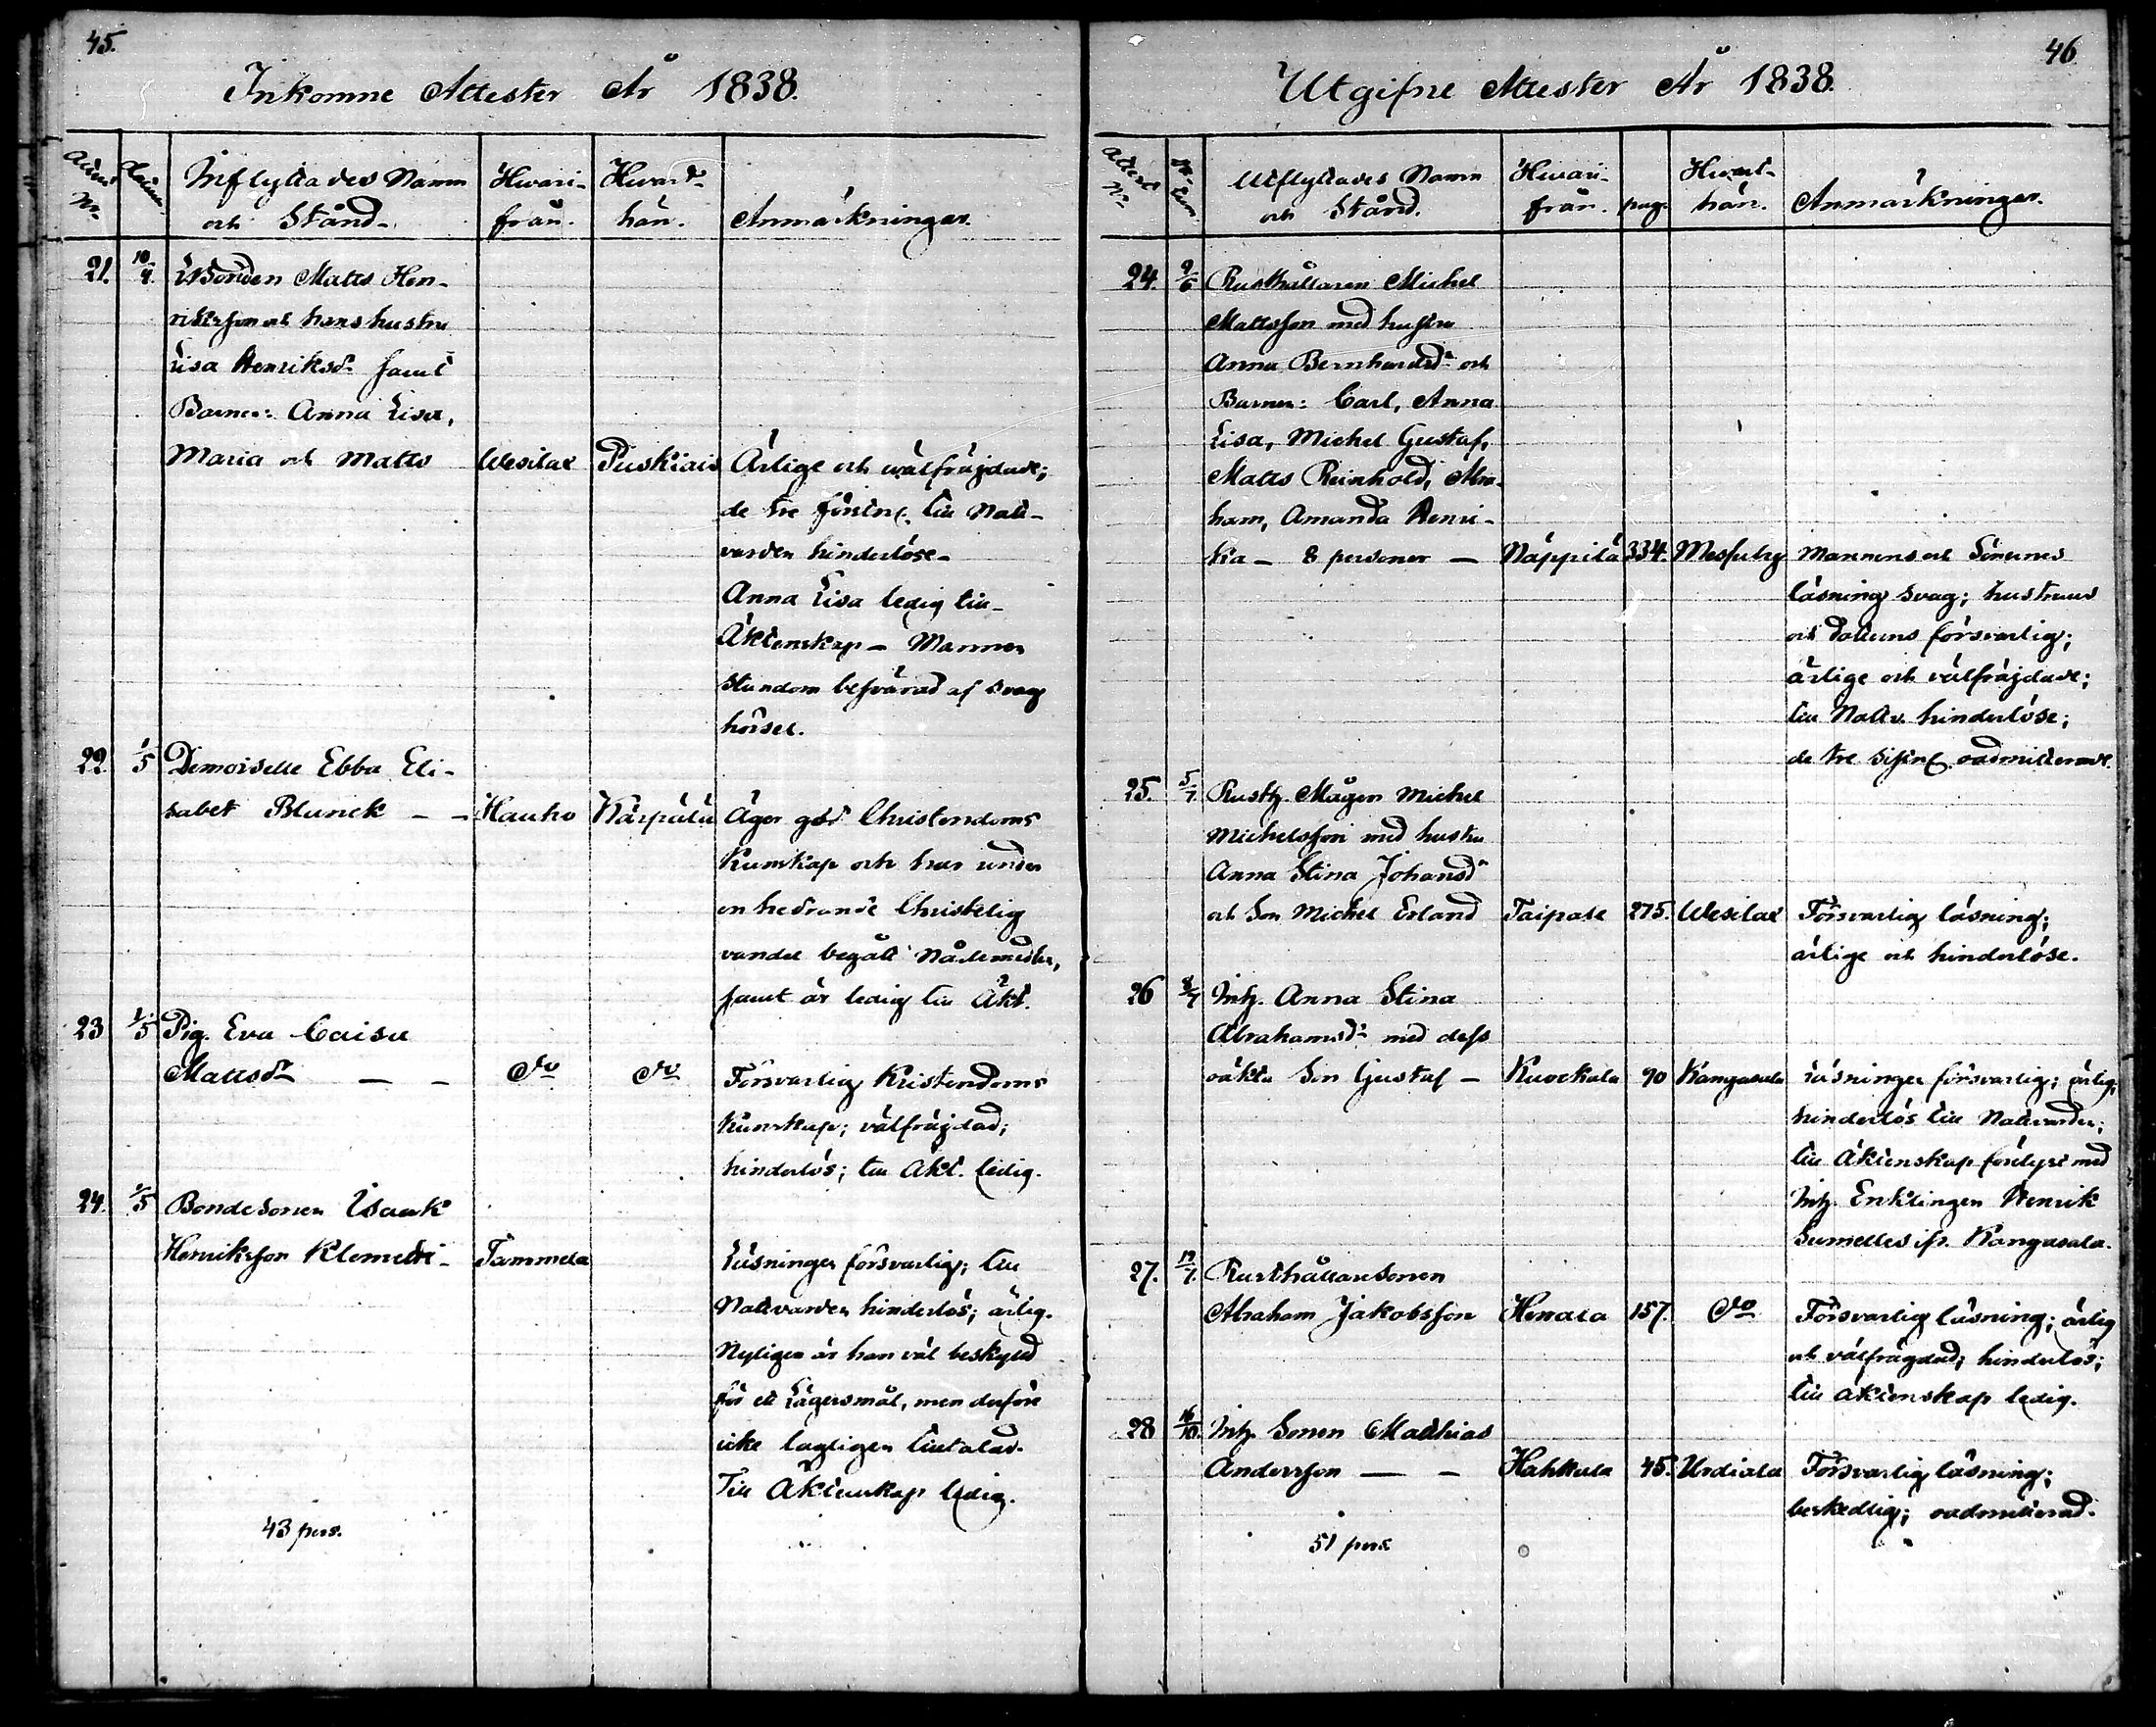 45.
Inkomne Attester År 1838.
Attest N:
Inflyttades Namn och Stånd.
Hvari-från.
Hvart-hän.
Anmärkningar.
21. 10/4. Bonden Matts Hen-
riksson och hans hustru
Lisa Henriksdr samt
Barnen: Anna Lisa,
Maria och Matts Wesilax Puskiais Ärlige och välfräjdade;
de tre förstn. till Natt-
varden hinderlöse-
Anna Lisa ledig till
Äktenskap - Mannen
stundom besvärad af svag
hörsel.
22. 1/5 Demoiselle Ebba Eli-
sabet Blunck - - Hauho Käspälä Äger god Christendoms
Kunskap och har under
en hedrande Christelig
vandel begått Nådemedlen,
samt är ledig till Äkt.
23 1/5 Pig. Eva Caisa
Mattsdr - - do do Försvarlig Kristendoms
Kunskap; välfräjdad;
hinderlös; till Äkt. ledig.
24. 1/5 Bondesonen Isaak
Henriksson Klemetti - Tammela Läsningen försvarlig; till
Nattvarden hinderlös; ärlig.
Nyligen är han väl beskyld
för ett Lägersmål, men derföre
icke lagligen tilltalad.
Till Äktenskap ledig.
43 pers.
46
Utgifne Attester År 1838.
Attest N:
Utflyttades Namn och Stånd.
Hvari-från.
pag.
Hvart-hän.
Anmärkningar.
24. 9/6 Rusthållaren Michel
Mattsson med hustru
Anna Bernhardsdr och
Barnen: Carl, Anna
Lisa, Michel Gustaf,
Matts Reinhold, Abra-
ham, Amanda Henri-
ka - 8 personer - Näppilä 334. Messuby Mannens och Sönernes
läsning svag; hustruns
och dotterns försvarlig;
ärlige och välfräjdade;
till Nattv. hinderlöse;
de tre sistn. oadmitterade.
25. 5/7 Rusth. Mågen Michel
Michelsson med hustru
Anna Stina Johansdr
och Son Michel Erland Taipale 275. Wesilax Försvarlig läsning;
ärlige och hinderlöse.
26 8/7 Inh. Anna Stina
Abrahamsdr med dess
oäkta Son Gustaf - Kuockala 90 Kangasala Läsningen försvarlig; ärlig;
hinderlös till Nattvarden;
till Äktenskap förelyst med
Inh. Enklingen Henrik
ifr. Kangasala.
27. 19/7. Rusthållaresonen
Abraham Jakobsson Herrala 157. do Försvarlig läsning; ärlig
och välfräjdad; hinderlös;
till äktenskap ledig.
28 16/10. Inh. Sonen Mathias
Andersson - - Hahkala 45. Urdiala Försvarlig läsning;
beskedlig; oadmitterad.
51 pers.